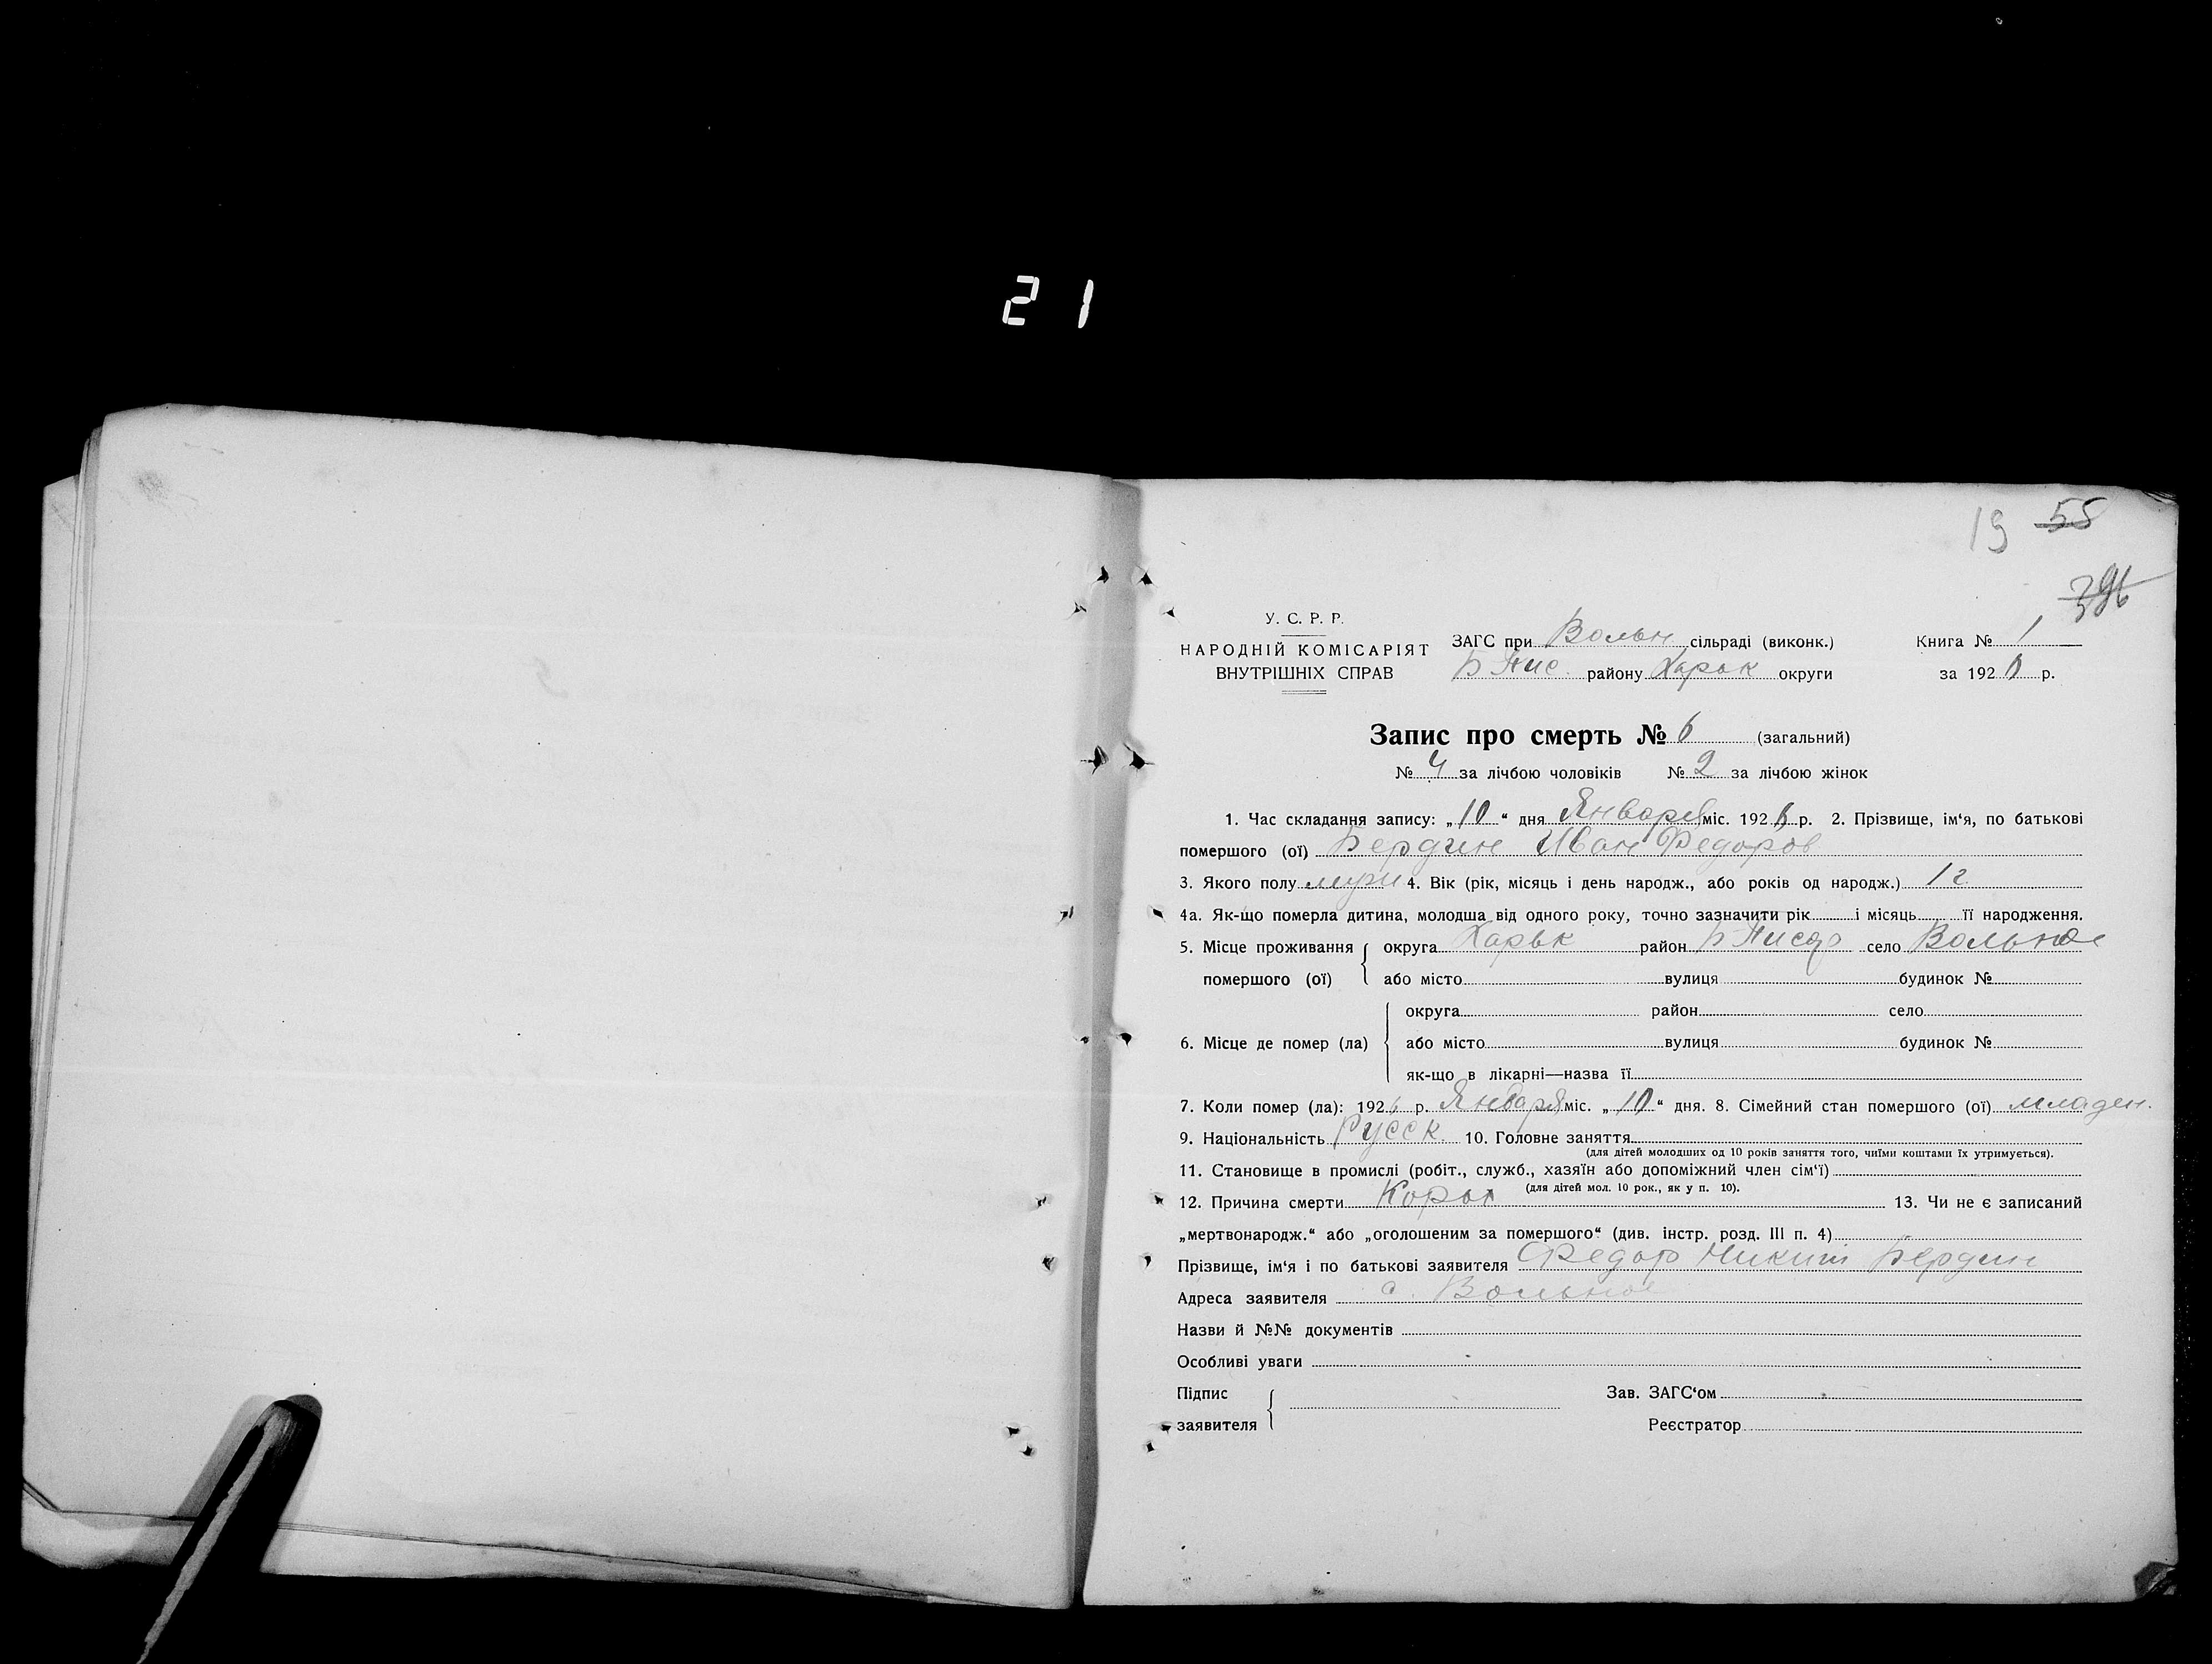 21
19 55
396
У. С. Р. Р.
НАРОДНІЙ КОМІСАРІЯТ
ВНУТРІШНІХ СПРАВ
ЗАГС при Вольн сільраді (виконк.)
Б Пис. району Харьк округи
Книга № 1
за 1926 р.
Запис про смерть № 6 (загальний)
№ 4 за лічбою чоловіків № 2 за лічбою жінок
1. Час складання запису: „10“ дня Января міс. 1926 р. 2. Прізвище, ім‘я, по батькові
помершого (ої) Бердин Иван Федоров
3. Якого полу муж 4. Вік (рік, місяць і день народж., або років од народж.) 1 г
4а. Як-що померла дитина, молодша від одного року, точно зазначити рік і місяць її народження.
5. Місце проживання помершого (ої) округа Харьк район Б Писар село Вольное
або місто вулиця будинок №
6. Місце де помер (ла) округа район село
або місто вулиця будинок №
як-що в лікарні—назва її
7. Коли помер (ла): 1926 р. Января міс. „10“ дня. 8. Сімейний стан помершого (ої) младен.
9. Національність Русск. 10. Головне заняття
(для дітей молодших од 10 років заняття того, чиїми коштами їх утримується).
11. Становище в промислі (робіт., служб., хазяїн або допоміжний член сім‘ї)
(для дітей мол. 10 рок., як у п. 10).
12. Причина смерти Корь 13. Чи не є записаний
„мертвонародж.“ або „оголошеним за помершого“ (див. інстр. розд. III п. 4)
Прізвище, ім‘я і по батькові заявителя Федор Никит Бердин
Адреса заявителя с. Вольное
Назви й №№ документів
Особливі уваги
Підпис заявителя
Зав. ЗАГС‘ом
Реєстратор